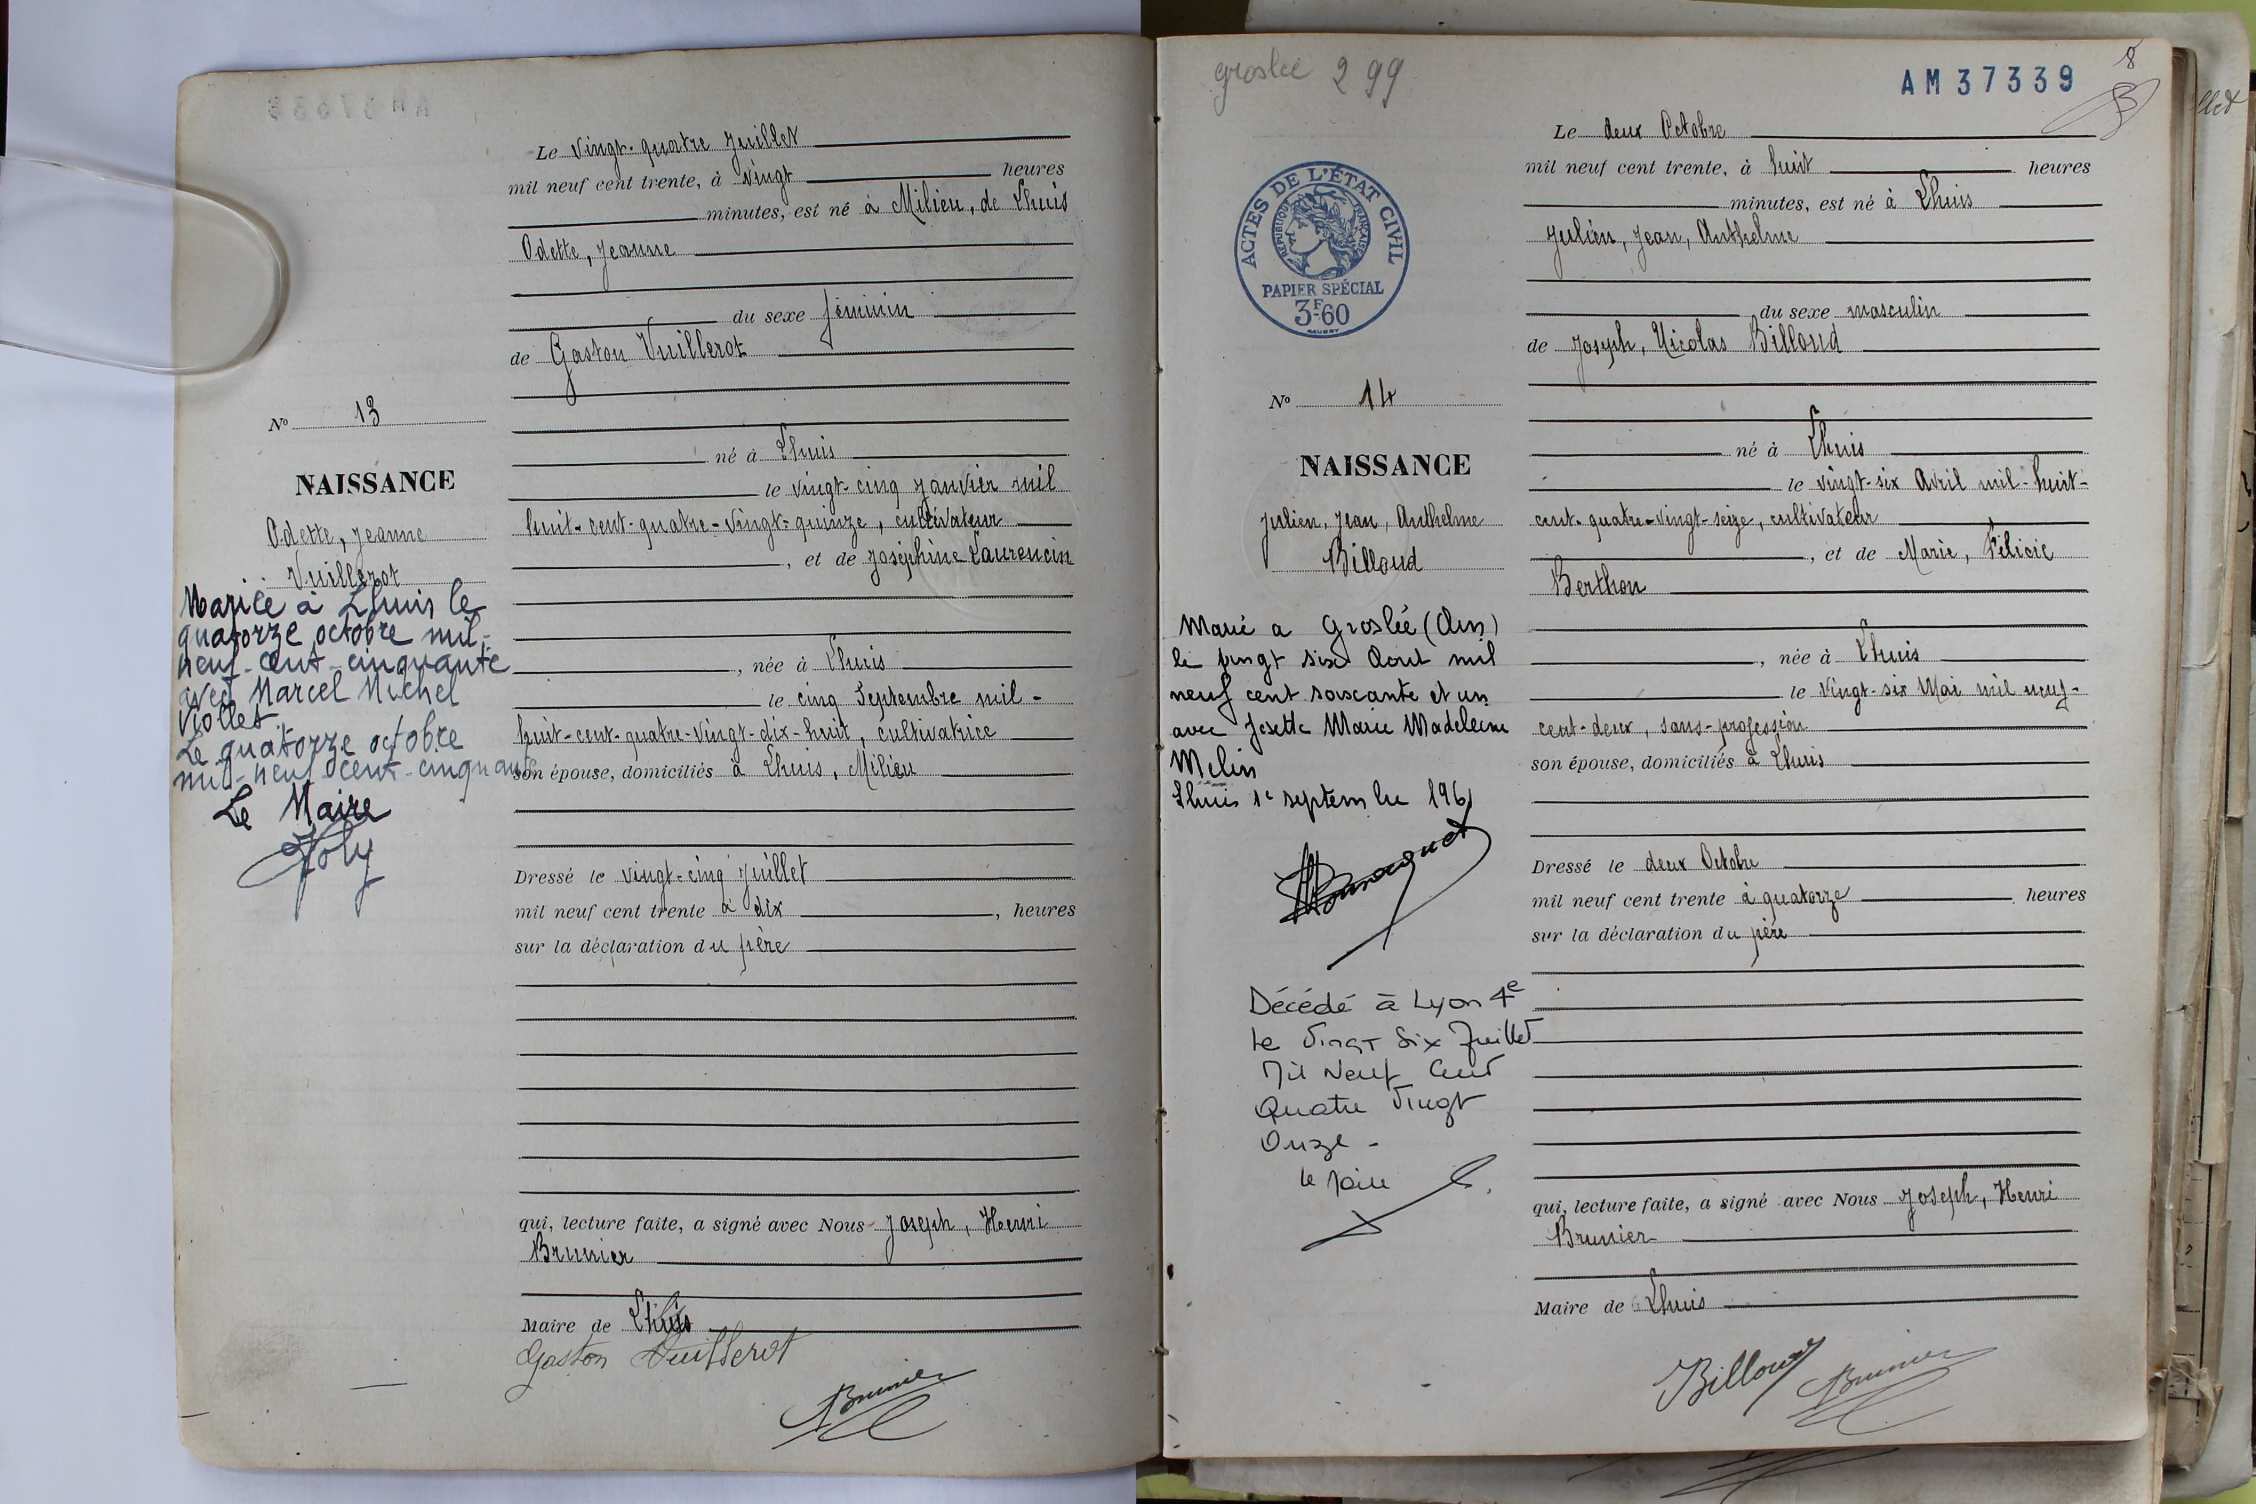 Le vingt-quatre Juillet
mil neuf cent trente, à vingt heures
minutes, est né à Milieu, de Lhuis
Odette, Jeanne
du sexe féminin
de Gaston Vuillerot
né à Lhuis
le vingt-cinq Janvier mil
huit-cent-quatre-vingt-quinze, cultivateur
, et de Joséphine Laurencin
, née à Lhuis
le cinq Septembre mil-
huit-cent-quatre-vingt-dix-huit, cultivatrice
son épouse, domiciliés à Lhuis, Milieu
Dressé le vingt-cinq Juillet
mil neuf cent trente à dix , heures
sur la déclaration du père
qui, lecture faite, a signé avec Nous Joseph, Henri
Brunier
Maire de Lhuis
Gaston Vuillerot
Brunier
No 13
NAISSANCE
Odette, Jeanne
Vuillerot
Mariée à Lhuis le
quatorze octobre mil-
neuf-cent-cinquante
avec Marcel Michel
Viollet.
Le quatorze octobre
mil-neuf-cent-cinquante
Le Maire
Joly
groslée 299
AM37339
8
ACTES DE L'ÉTAT CIVIL
RÉPUBLIQUE FRANÇAISE
PAPIER SPÉCIAL
3F60
No 14
NAISSANCE
Julien, Jean, Anthelme
Billoud
Marié a Groslée (Ain)
le vingt six Aout mil
neuf cent soixante et un
avec Josette Marie Madeleine
Melin
Lhuis 1e septembre 1961
Décédé à Lyon 4e
Le Vingt Six Juillet
Mil Neuf Cent
Quatre Vingt
Onze -
le Maire
Le deux Octobre
mil neuf cent trente, à huit heures
minutes, est né à Lhuis
Julien, Jean, Anthelme
du sexe masculin
de Joseph, Nicolas Billoud
né à Lhuis
le vingt-six Avril mil-huit-
cent-quatre-vingt-seize, cultivateur
, et de Marie, Félicie
Berthon
, née à Lhuis
le vingt-six Mai mil neuf-
cent-deux, sans-profession
son épouse, domiciliés à Lhuis
Dressé le deux Octobre
mil neuf cent trente à quatorze heures
sur la déclaration du père
qui, lecture faite, a signé avec Nous Joseph, Henri
Brunier
Maire de Lhuis
Billoud
Brunier